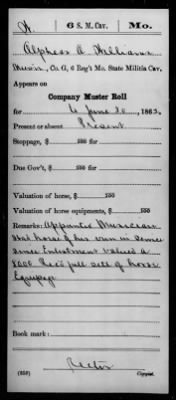 W. 6 S. M. Cav. Mo.
Alpheus A. Williams
, Co. G, 6 Reg't Mo. State Militia Cav.
Appears on
Company Muster Roll
for to June 30, 1863.
Present or absent Present
Stoppage, $ 100 for
Due Gov't, $ 100 for
Valuation of horse, $ 100
Valuation of horse equipments, $ 100
Remarks: Appointed Musician
Has horse of his own in Service
since Enlistment valued a
full sett of horse
Equipage
Book mark:
(358) Copyist.